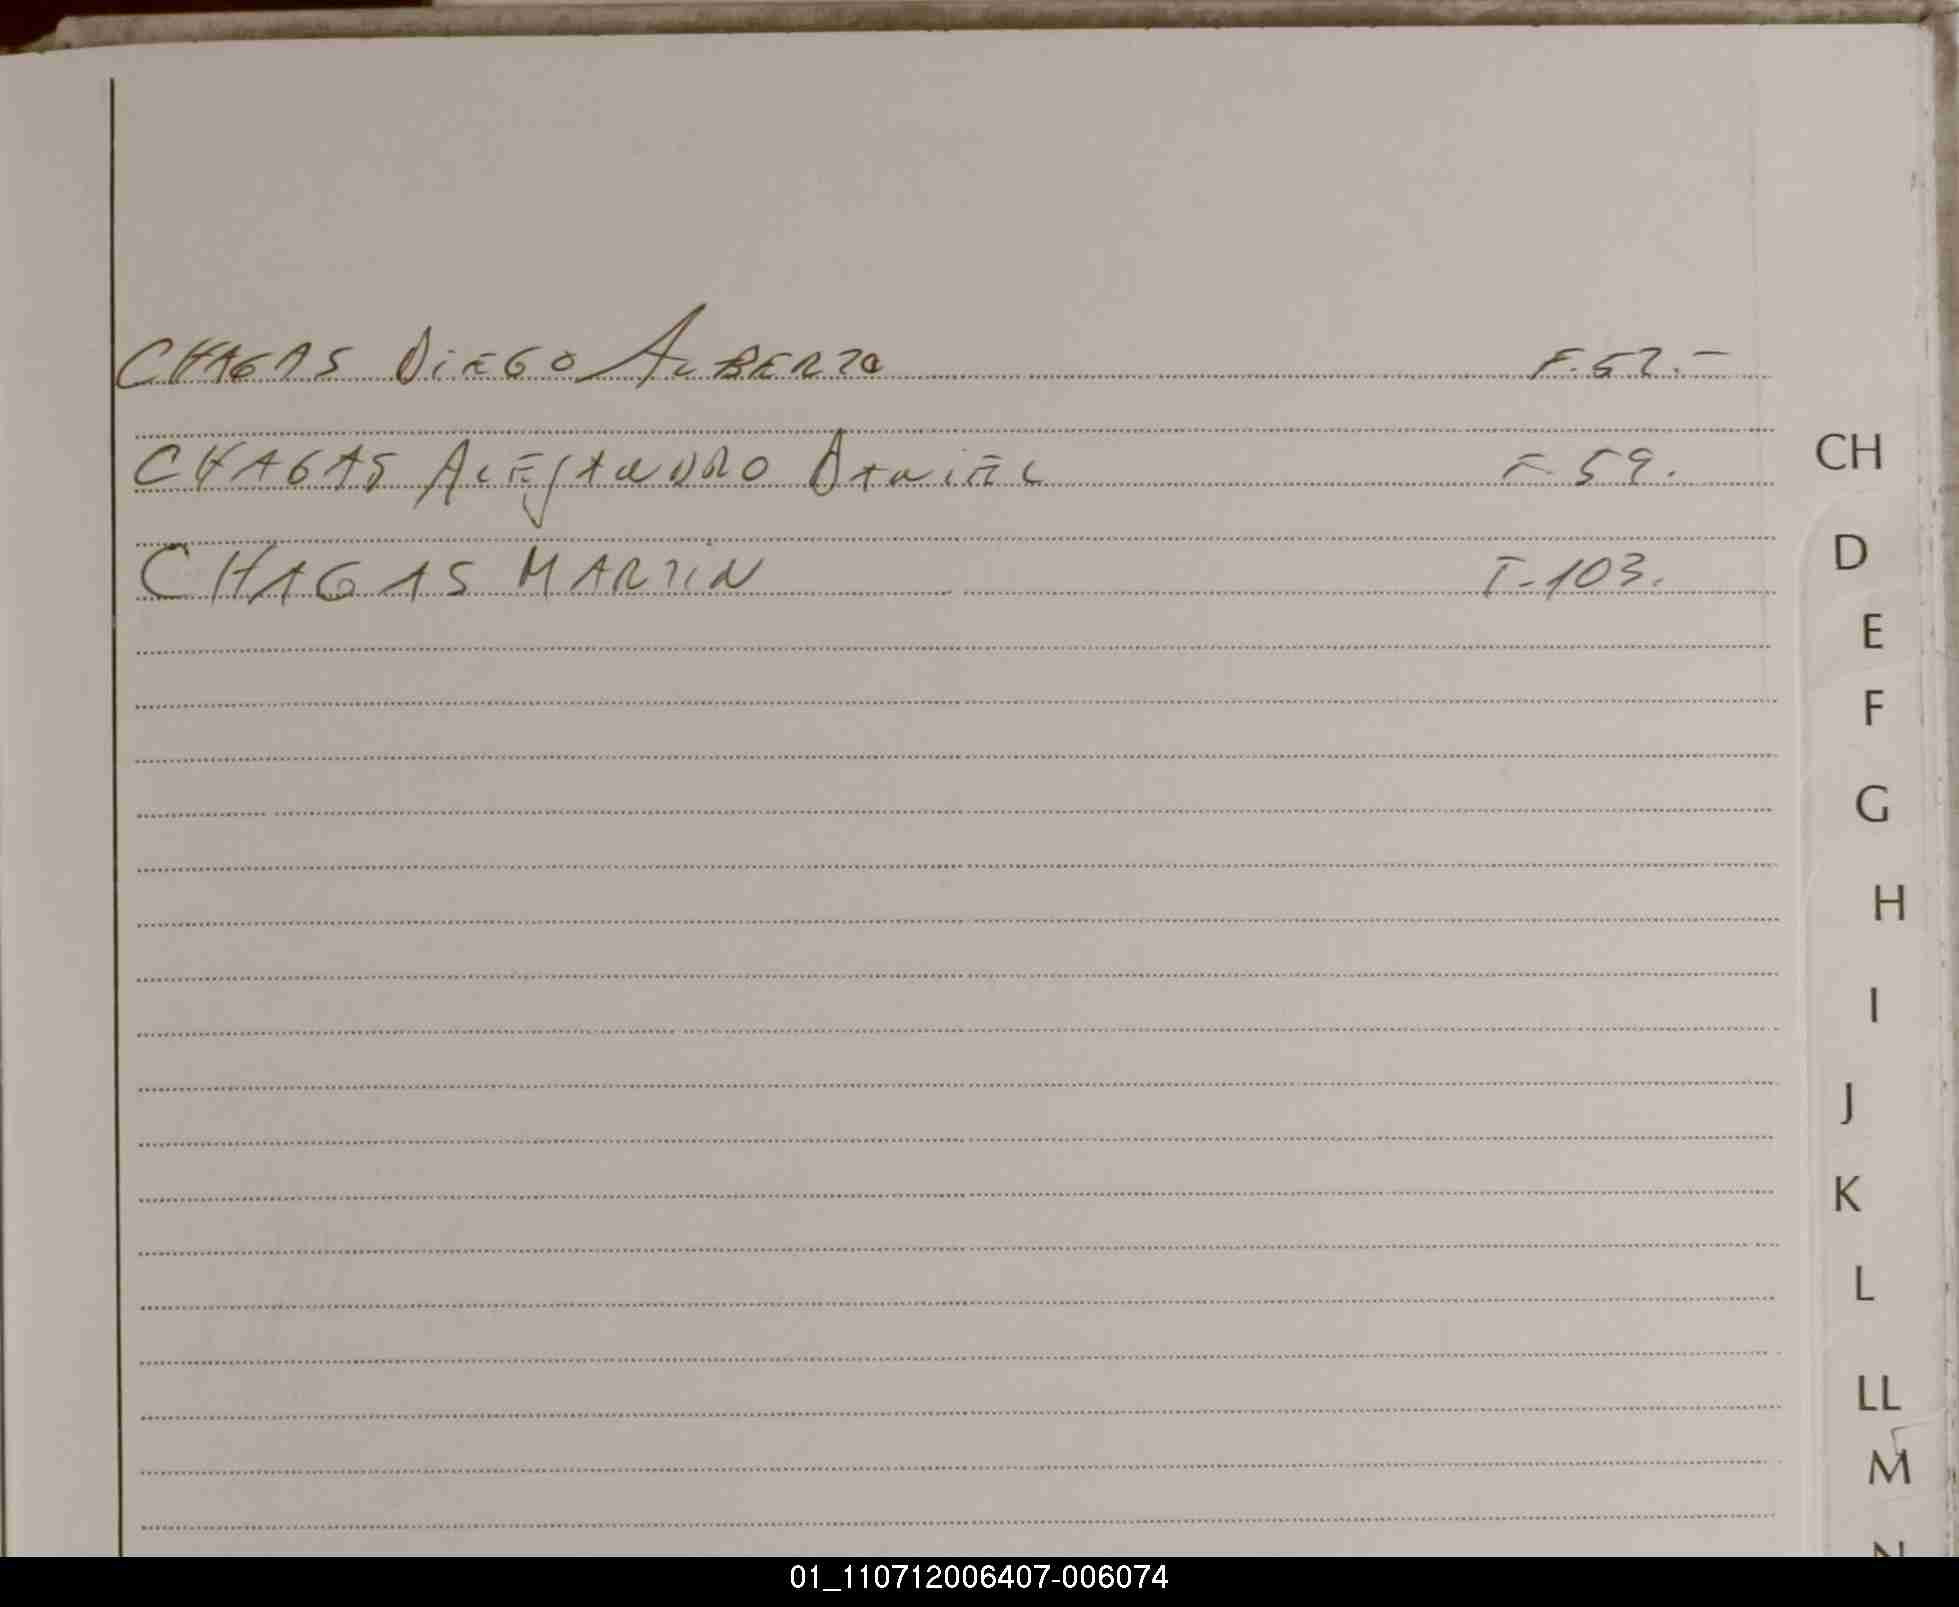 CHAGAS DIEGO ALBERTO F. 57.-
CHAGAS ALEJANDRO DANIEL F. 59.
CHAGAS MARTIN F-103.
CH
D
E
F
G
H
I
J
K
L
LL
M
N
01_110712006407-006074